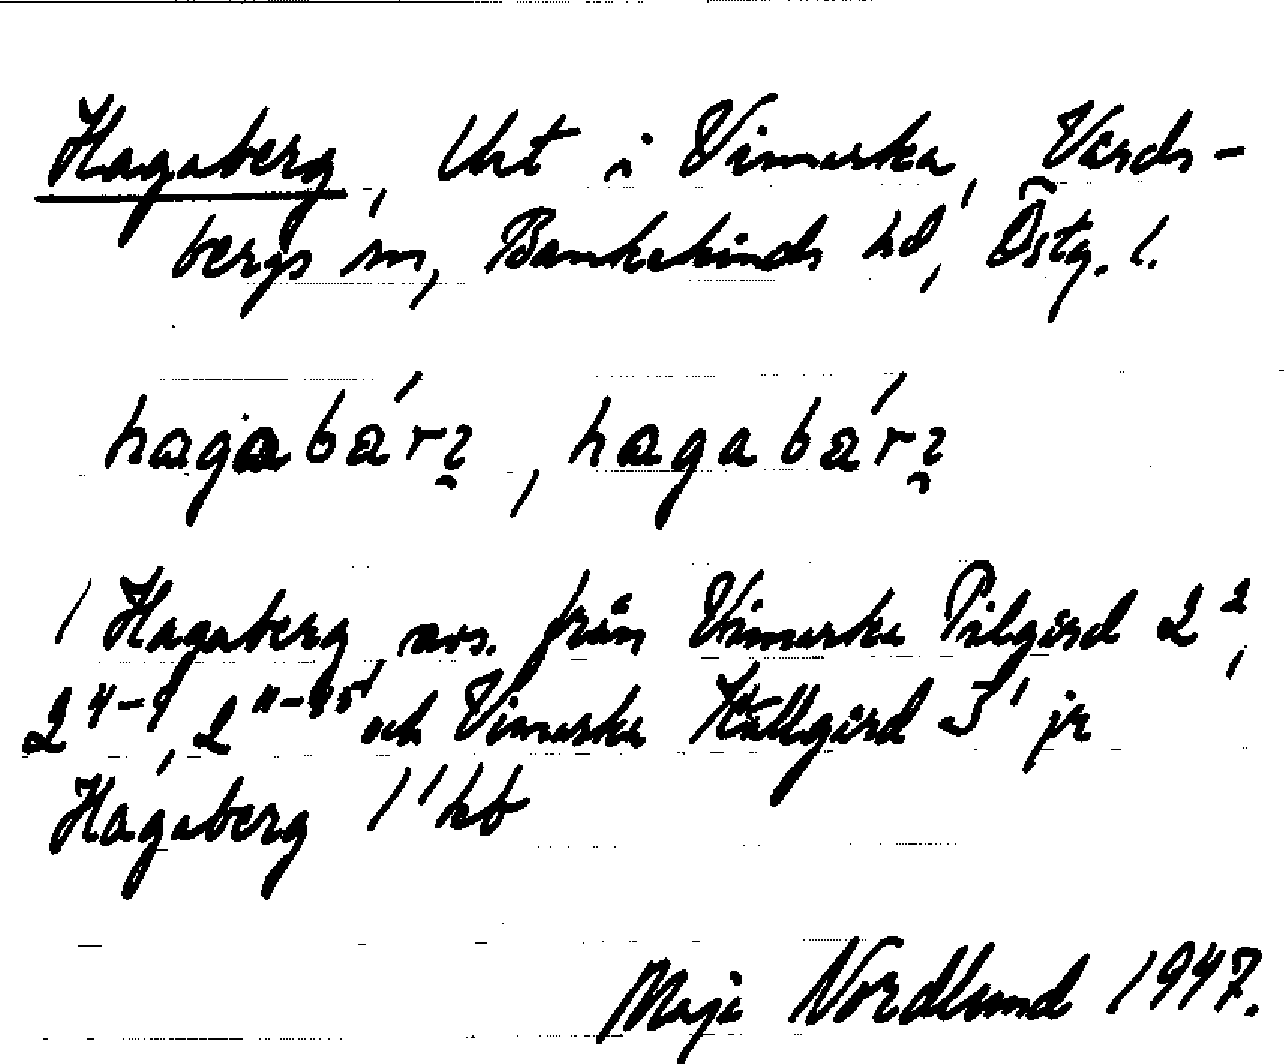 Hagaberg, Urt i Vimarka, Vårds-
bergs sn, Bankekinds hd, Östg. l.
hagabárʒ, hagabárʒ
1 Hagaberg, avs. från Vimarka Pilgård 2²,
2⁴⁻⁹, 2¹¹⁻¹⁵ och Vimarka Hällgård 3¹ jr
Hagaberg 1¹ hb
Maja Nordlund 1947.